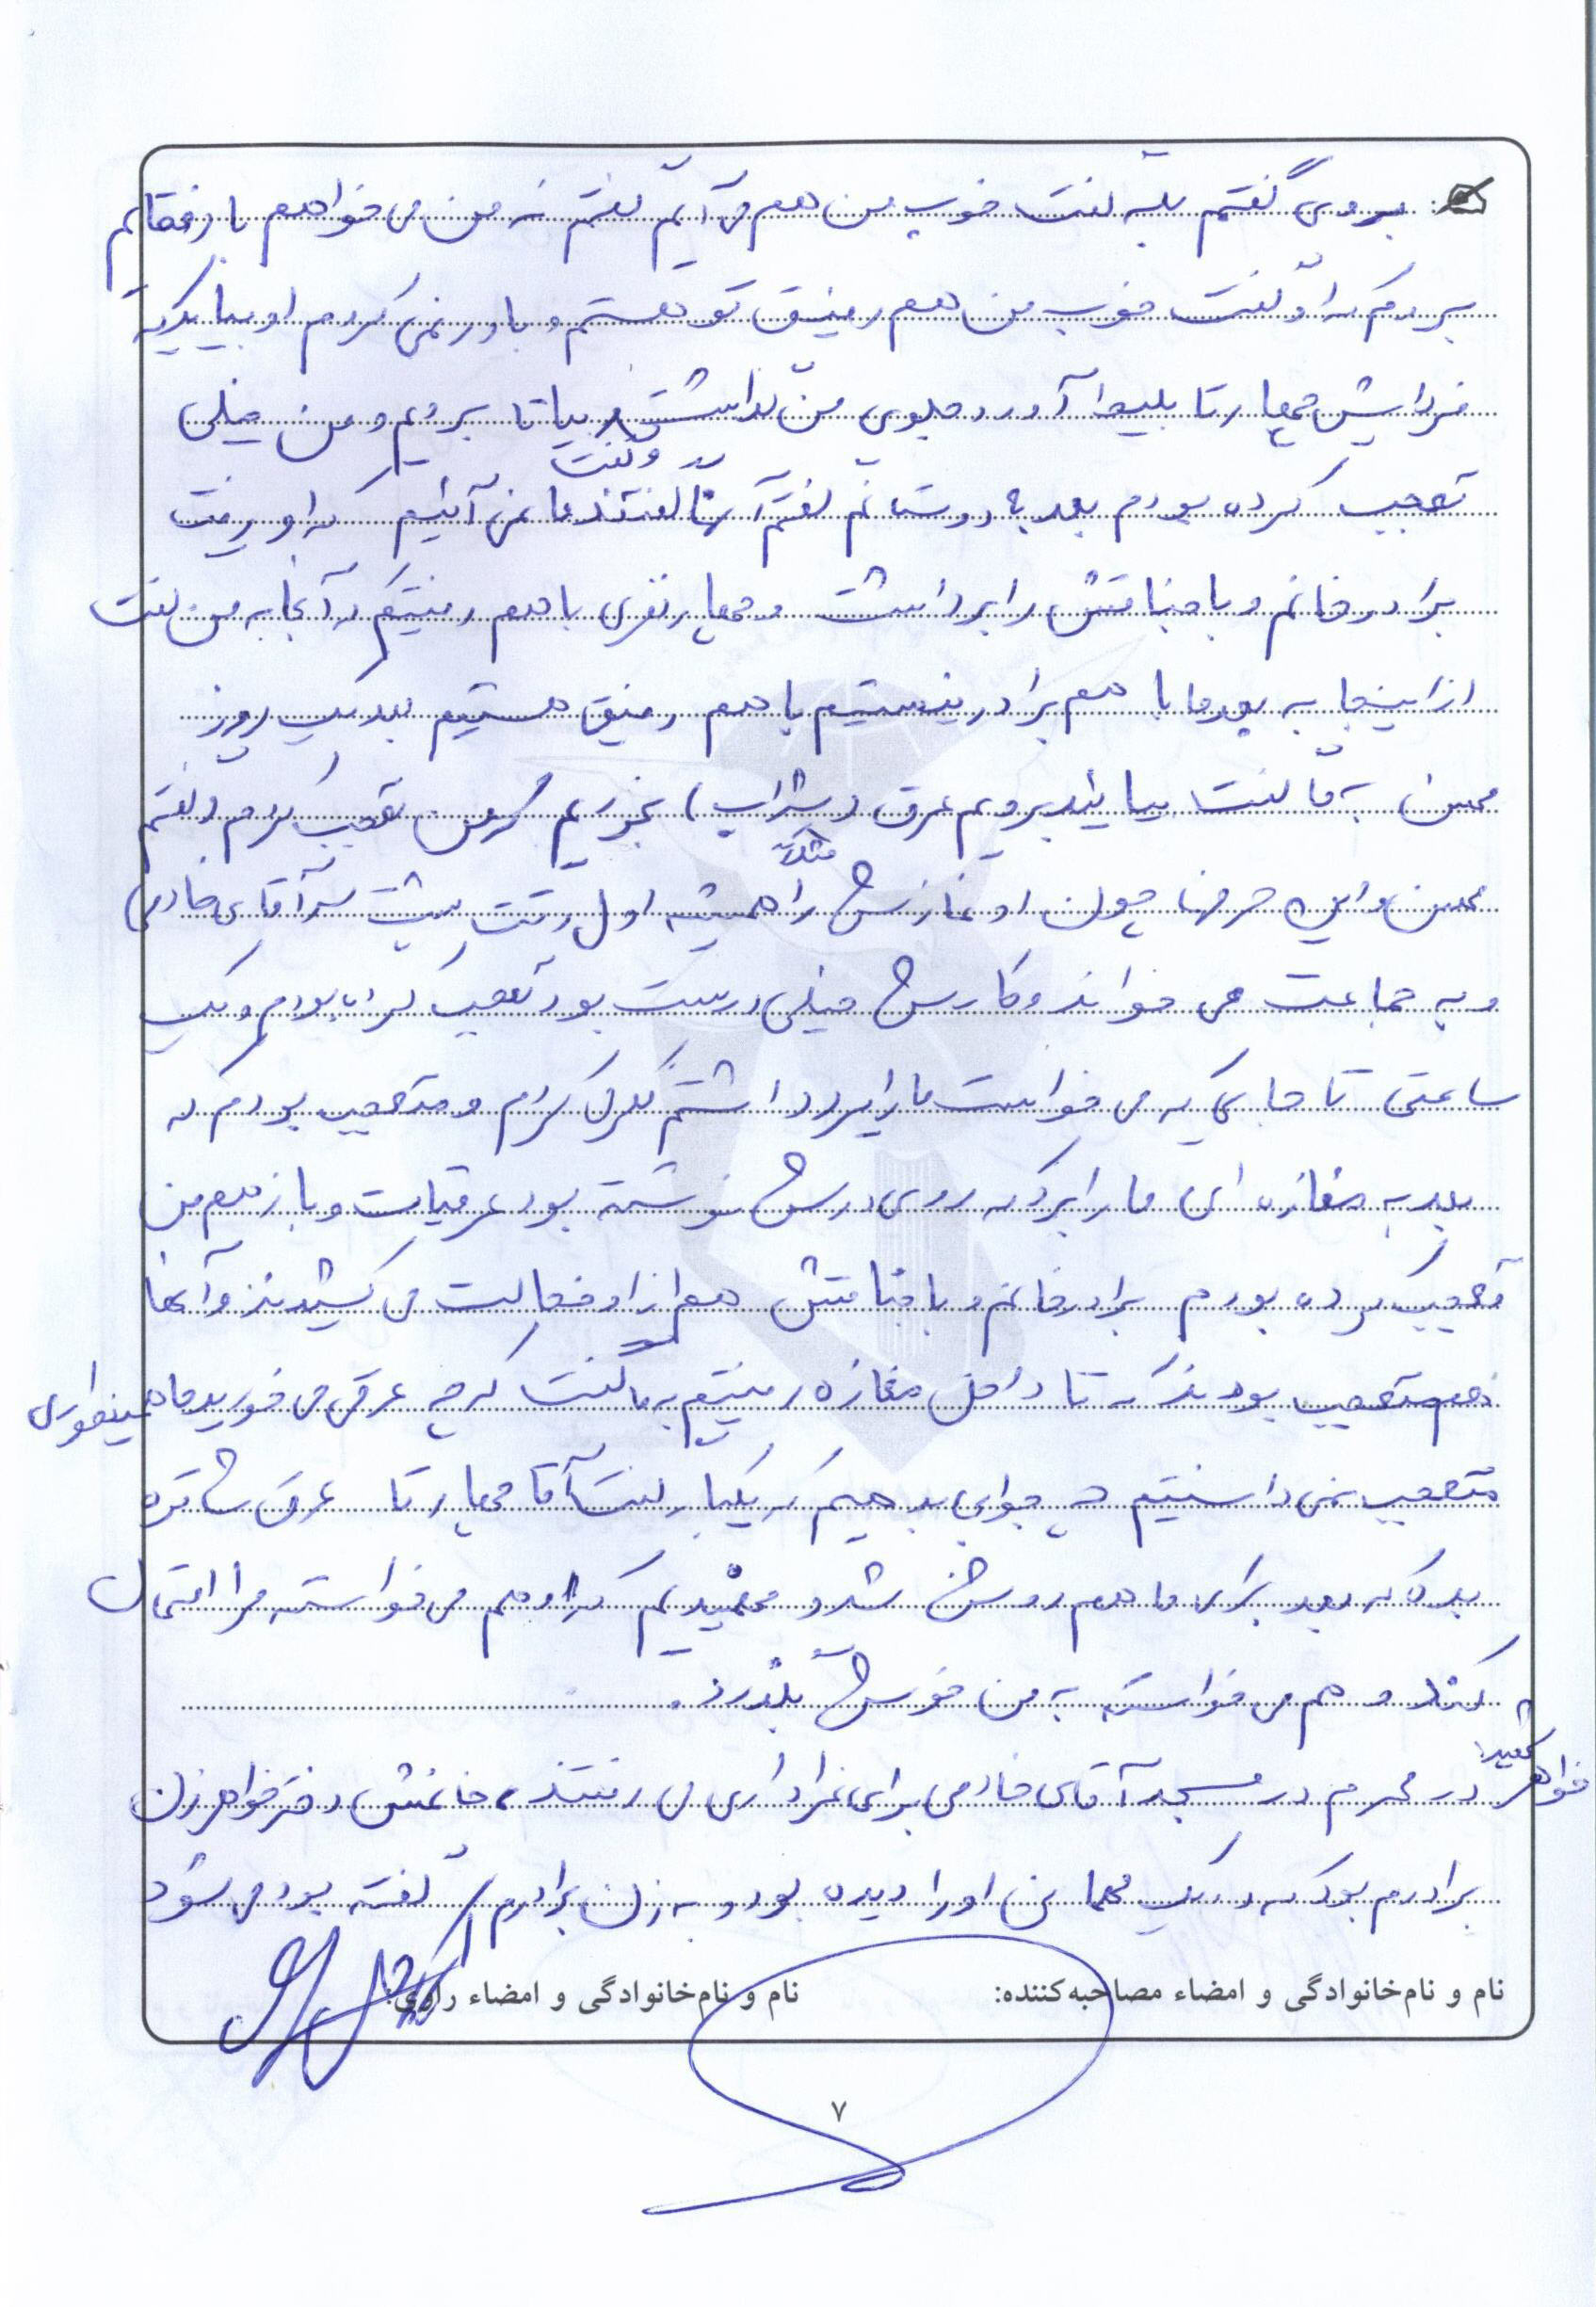 بروی گفتم بله گفت خوب من هم می آیم گفتم نه من می خواهم با رفقایم
بروم که او گفت خوب من هم رفیق تو هستم و باور نمی کردم او بیاید که
فردایش چهار تا بلیط آورد جلوی من گذاشت و گفت بیا تا برویم و من خیلی
تعجب کرده بودم بعد به دوستانم گفتم آنها گفتند ما نمی آئیم که او رفت
برادر خانم و باجناقش را برداشت و چهار نفری با هم رفتیم که آنجا به من گفت
از اینجا به بعد ما با هم برادر نیستیم با هم رفیق هستیم بعد یک روز
محسن به ما گفت بیائید برویم عرق (شراب) بخوریم که من تعجب کردم و گفتم
محسن و این حرفها چون او نمازش را همیشه اول وقت پشت سر آقای خادمی
و به جماعت می خواند و کارش خیلی درست بود تعجب کرده بودم و یک
ساعتی تا جایی که می خواست ما را ببرد داشتم فکر می کردم و متعجب بودم که
بعد به مغازه ای ما را برد که روی درش نوشته بود عرقیات و باز هم من
تعجب کرده بودم برادر خانم و باجناقش هم از او خجالت می کشیدند و آنها
هم متعجب بودند که تا داخل مغازه رفتیم به ما گفت که چه عرقی می خورید ما همینطوری
متعجب نمی دانستیم چه جوابی بدهیم که یکبار گفت آقا چهار تا عرق شاتره
بده که بعد برای ما هم روشن شد و فهمیدیم که او هم می خواسته مرا امتحان
کند و هم می خواسته به من خوش بگذرد.
خواهر شهید: در محرم در مسجد آقای خادمی برای عزاداری می رفتند، خانمش دختر خواهر زن
برادرم بود که در یک مهمانی او را دیده بود و به زن برادرم گفته بود می شود
نام و نام‌خانوادگی و امضاء مصاحبه‌کننده: نام و نام‌خانوادگی و امضاء راوی:
۷